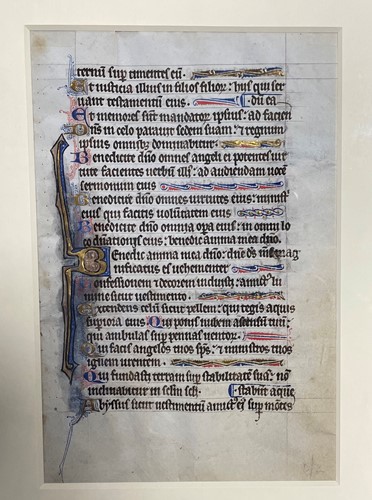 ternum super timentes eũ.
Et iusticia illius in filios filior: hijs qui ser
uant testamentũ eius. dũ ea
Et memores sũt mandator ipsius: ad facien
Dñs in celo parauit sedem suam: ⁊ regnum
ipsius omnibꝫ dominabitur.
Benedicite dño omnes angeli eˀ potentes uir
tute facientes uerbũ illˀ: ad audiendam uocẽ
sermonum eius
Benedicite dño omnes uirtutes eius: ministˀ
eius qui facitis uoluntatem eius
Benedicite dño omnia opa eius: in omni lo
co dñationis eius: benedic anima mea dño.
Benedic anima mea dño: dñe dˢ mˢ mag
nificatus es uehementer
Confessionem ⁊ decorem induisti: amictˀ lu
mine sicut uestimento.
Extendens celũ sicut pellem: qui tegis aquis
supiora eius Qui ponis nubem ascensũ tuũ:
qui ambulas sup pennas uentor.
Qui facis angelos tuos spˢ: ⁊ ministros tuos
ignem urentem.
Qui fundasti terram sup stabilitatẽ suã: nõ
inclinabitur in sclm scli. stabũt aque
Abyssus sicut uestimentũ amictˢ eˢ sup mõtes